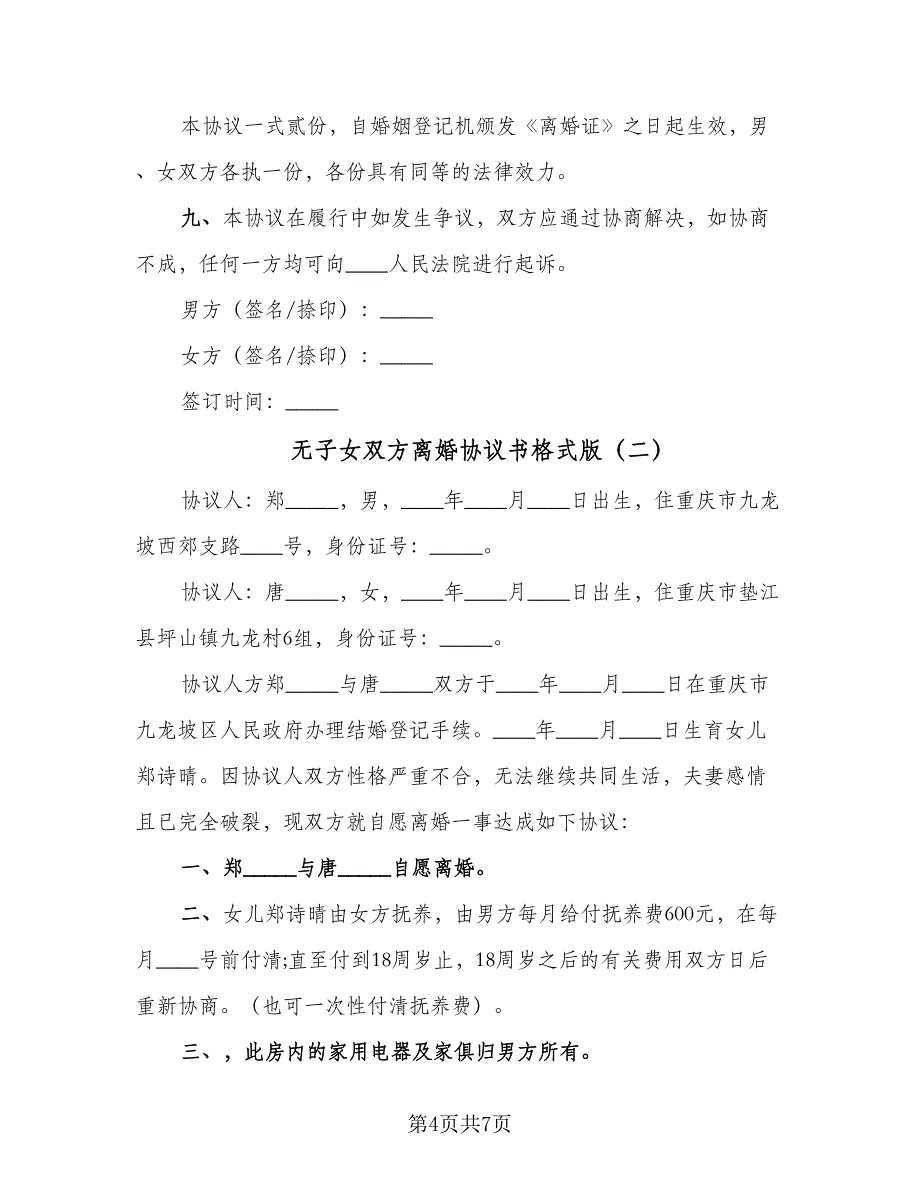 本协议一式贰份，自婚姻登记机颁发《离婚证》之日起生效，男
、女双方各执一份，各份具有同等的法律效力。
九、本协议在履行中如发生争议，双方应通过协商解决，如协商
不成，任何一方均可向____人民法院进行起诉。
男方（签名/捺印）：_____
女方（签名/捺印）：_____
签订时间：_____
无子女双方离婚协议书格式版（二）
协议人：郑_____，男，____年____月____日出生，住重庆市九龙
坡西郊支路____号，身份证号：_____。
协议人：唐_____，女，____年____月____日出生，住重庆市垫江
县坪山镇九龙村6组，身份证号：_____。
协议人方郑_____与唐_____双方于____年____月____日在重庆市
九龙坡区人民政府办理结婚登记手续。____年____月____日生育女儿
郑诗晴。因协议人双方性格严重不合，无法继续共同生活，夫妻感情
且已完全破裂，现双方就自愿离婚一事达成如下协议：
一、郑_____与唐_____自愿离婚。
二、女儿郑诗晴由女方抚养，由男方每月给付抚养费600元，在每
月____号前付清;直至付到18周岁止，18周岁之后的有关费用双方日后
重新协商。（也可一次性付清抚养费）。
三、，此房内的家用电器及家俱归男方所有。
第4页共7页